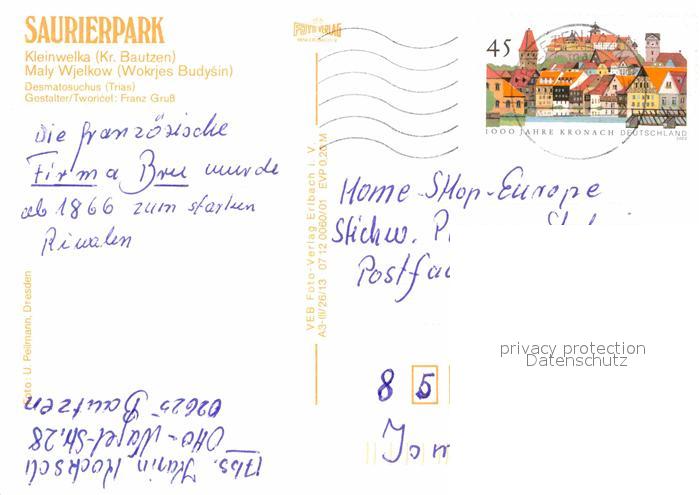 SAURIERPARK
Kleinwelka (Kr. Bautzen)
Mały Wjelkow (Wokrjes Budyšin)
Desmatosuchus (Trias)
Gestalter/Tworićel: Franz Gruß
Die französische
Firma Bru wurde
ab 1866 zum starken
Riwalen
Foto: U. Peilmann, Dresden
Abs. Karin
Otto-Nagel-Str. 28
02625 Bautzen
FOTO VERLAG
VEB Foto-Verlag Erlbach i. V.
A3-III/26/13 07 12 0060/01 EVP 0,20 M
45
1000 JAHRE KRONACH DEUTSCHLAND
2003
Home-Shop-Europe
Stichw. P
Postfac
85
Ism
privacy protection
Datenschutz